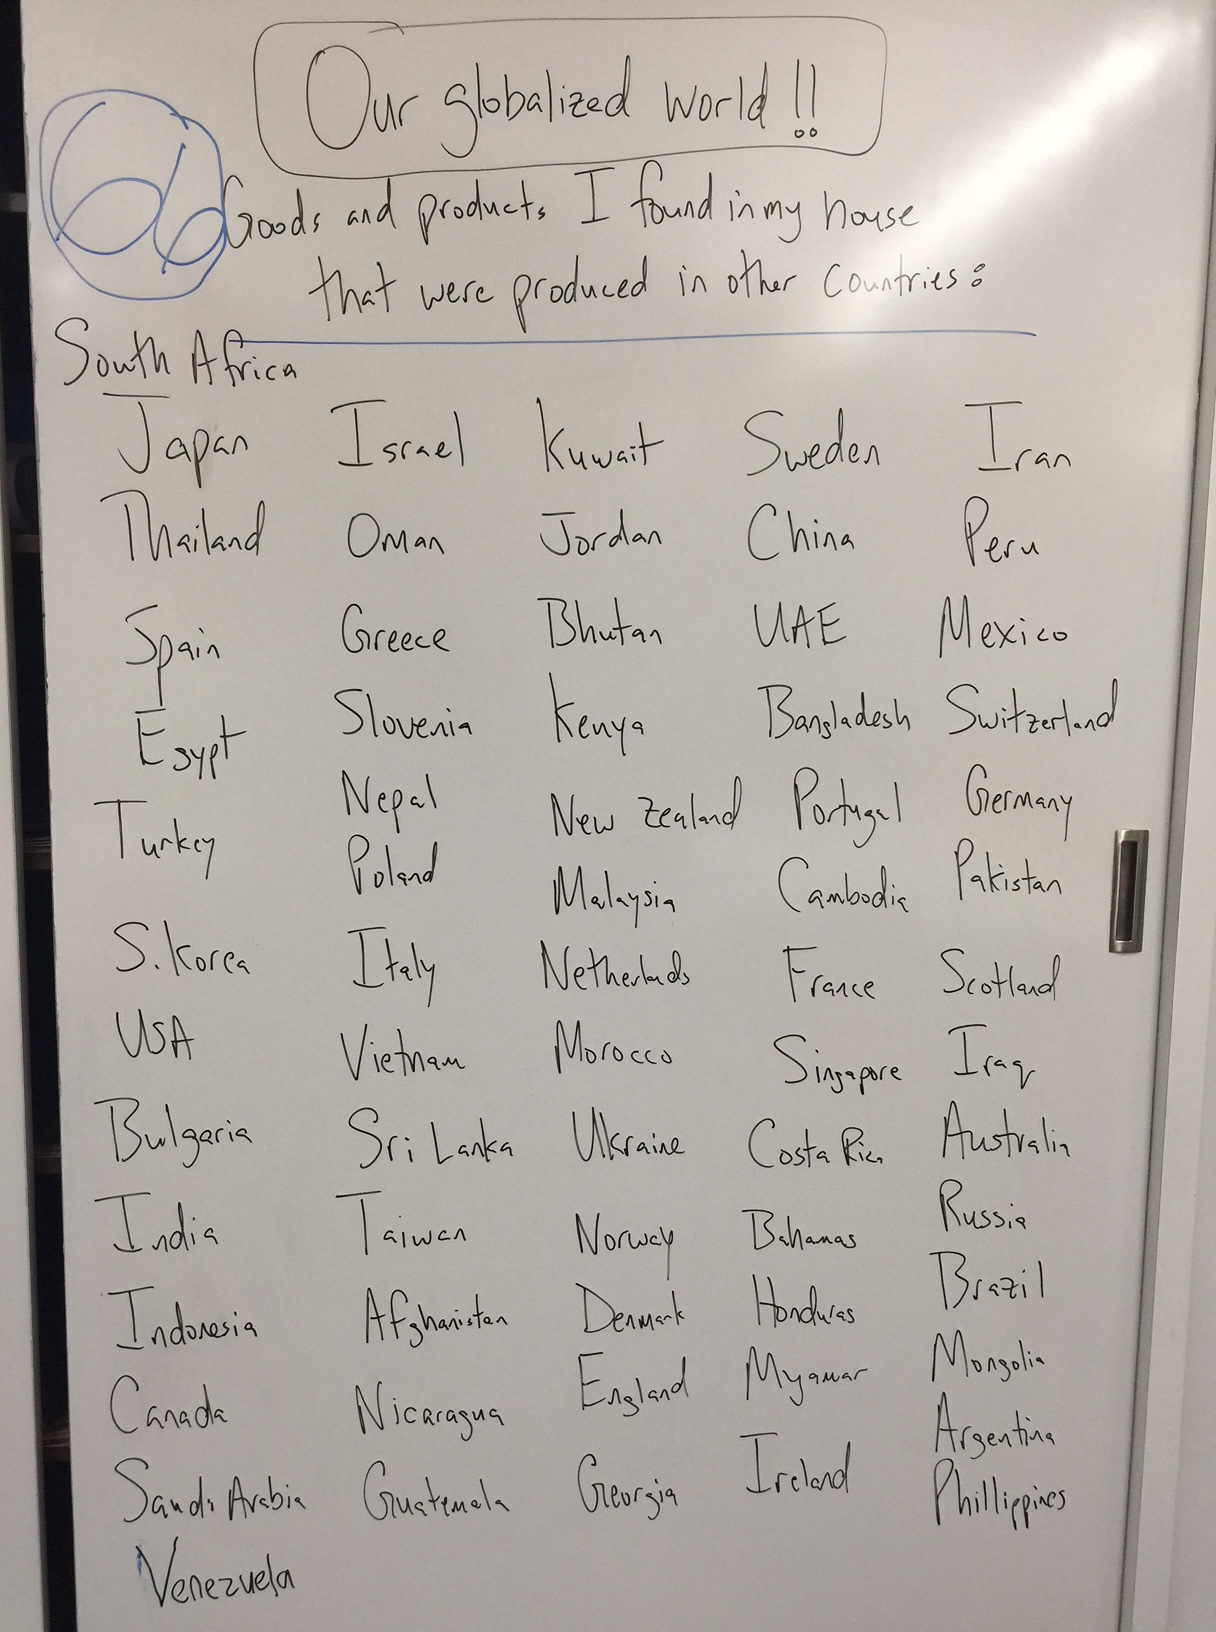 Our globalized world !!
66
Goods and products I found in my house
that were produced in other countries:
South Africa
Japan
Thailand
Spain
Egypt
Turkey
S. Korea
USA
Bulgaria
India
Indonesia
Canada
Saudi Arabia
Venezuela
Israel
Oman
Greece
Slovenia
Nepal
Poland
Italy
Vietnam
Sri Lanka
Taiwan
Afghanistan
Nicaragua
Guatemala
Kuwait
Jordan
Bhutan
Kenya
New Zealand
Malaysia
Netherlands
Morocco
Ukraine
Norway
Denmark
England
Georgia
Sweden
China
UAE
Bangladesh
Portugal
Cambodia
France
Singapore
Costa Rica
Bahamas
Honduras
Myamar
Ireland
Iran
Peru
Mexico
Switzerland
Germany
Pakistan
Scotland
Iraq
Australia
Russia
Brazil
Mongolia
Argentina
Phillippines